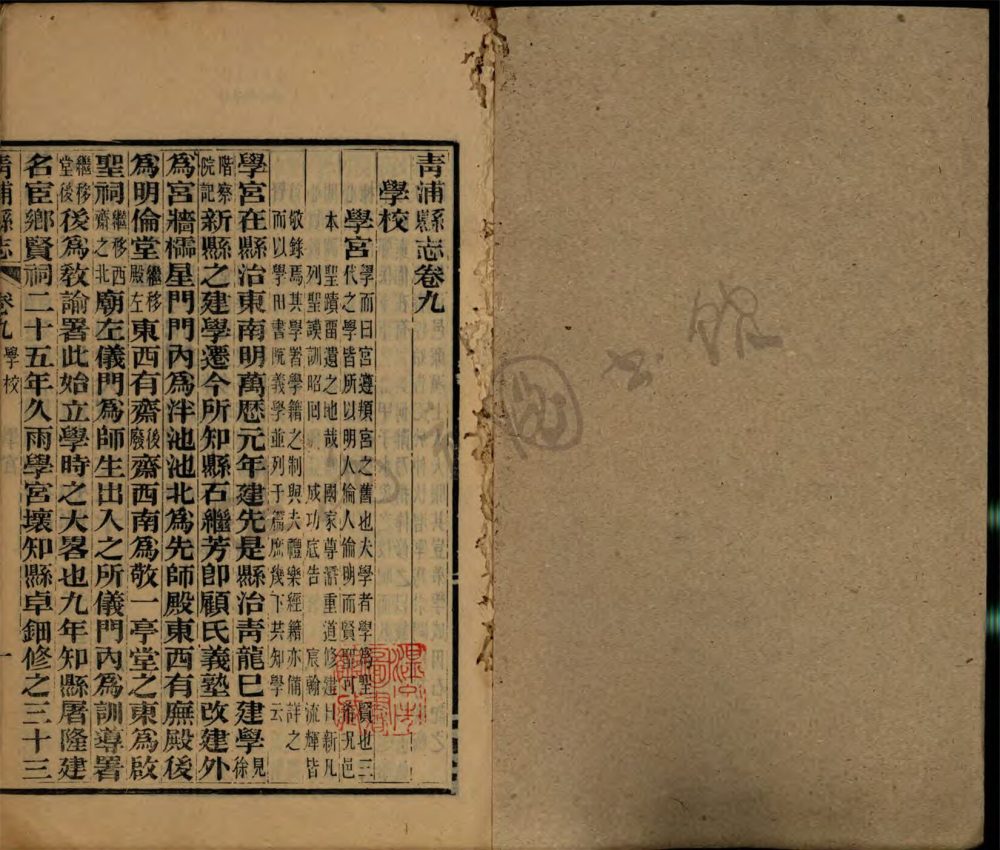 青浦縣志卷九
學校
學宮學而曰宮遵頖宮之舊也夫學者學爲聖賢也三
代之學皆所以明人倫人倫明而賢聖可希況邑
本 聖蹟畱遺之地哉 國家尊儒重道修建日新凡
列聖謨訓昭回 成功底告 宸翰流輝皆
敬錄焉其學署學籍之制與夫禮樂經籍亦備詳之
而以學田書院義學並列于篇庶幾下共知學云
學宮在縣治東南明萬歷元年建先是縣治青龍已建學見徐
階察院記新縣之建學遷今所知縣石繼芳卽顧氏義塾改建外
爲宮牆櫺星門門內爲泮池池北爲先師殿東西有廡殿後
爲明倫堂繼移殿左東西有齋後廢齋西南爲敬一亭堂之東爲啟
聖祠繼移西齋之北廟左儀門爲師生出入之所儀門內爲訓導署
繼移堂後後爲教諭署此始立學時之大畧也九年知縣屠隆建
名宦鄉賢祠二十五年久雨學宮壞知縣卓鈿修之三十三
青浦縣志 卷九 學校 一